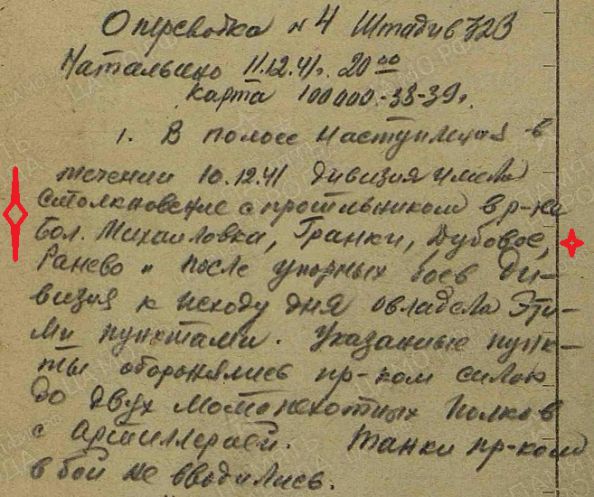 Оперсводка № 4 Штадив 723
Натальино 11.12.41г. 20 00
Карта 100000.-38-39г.
1. В полосе наступления в
течении 10.12.41 дивизия имела
столкновение с противником в р-не
Бол. Михайловка, Гранки, Дубовое,
Ранево и после упорных боев ди-
визия к исходу дня овладела эти-
ми пунктами. Указанные пунк-
ты оборонялись пр-ком силою
до двух мотопехотных полков
с артиллерией. Танки пр-ком
в бой не вводились.